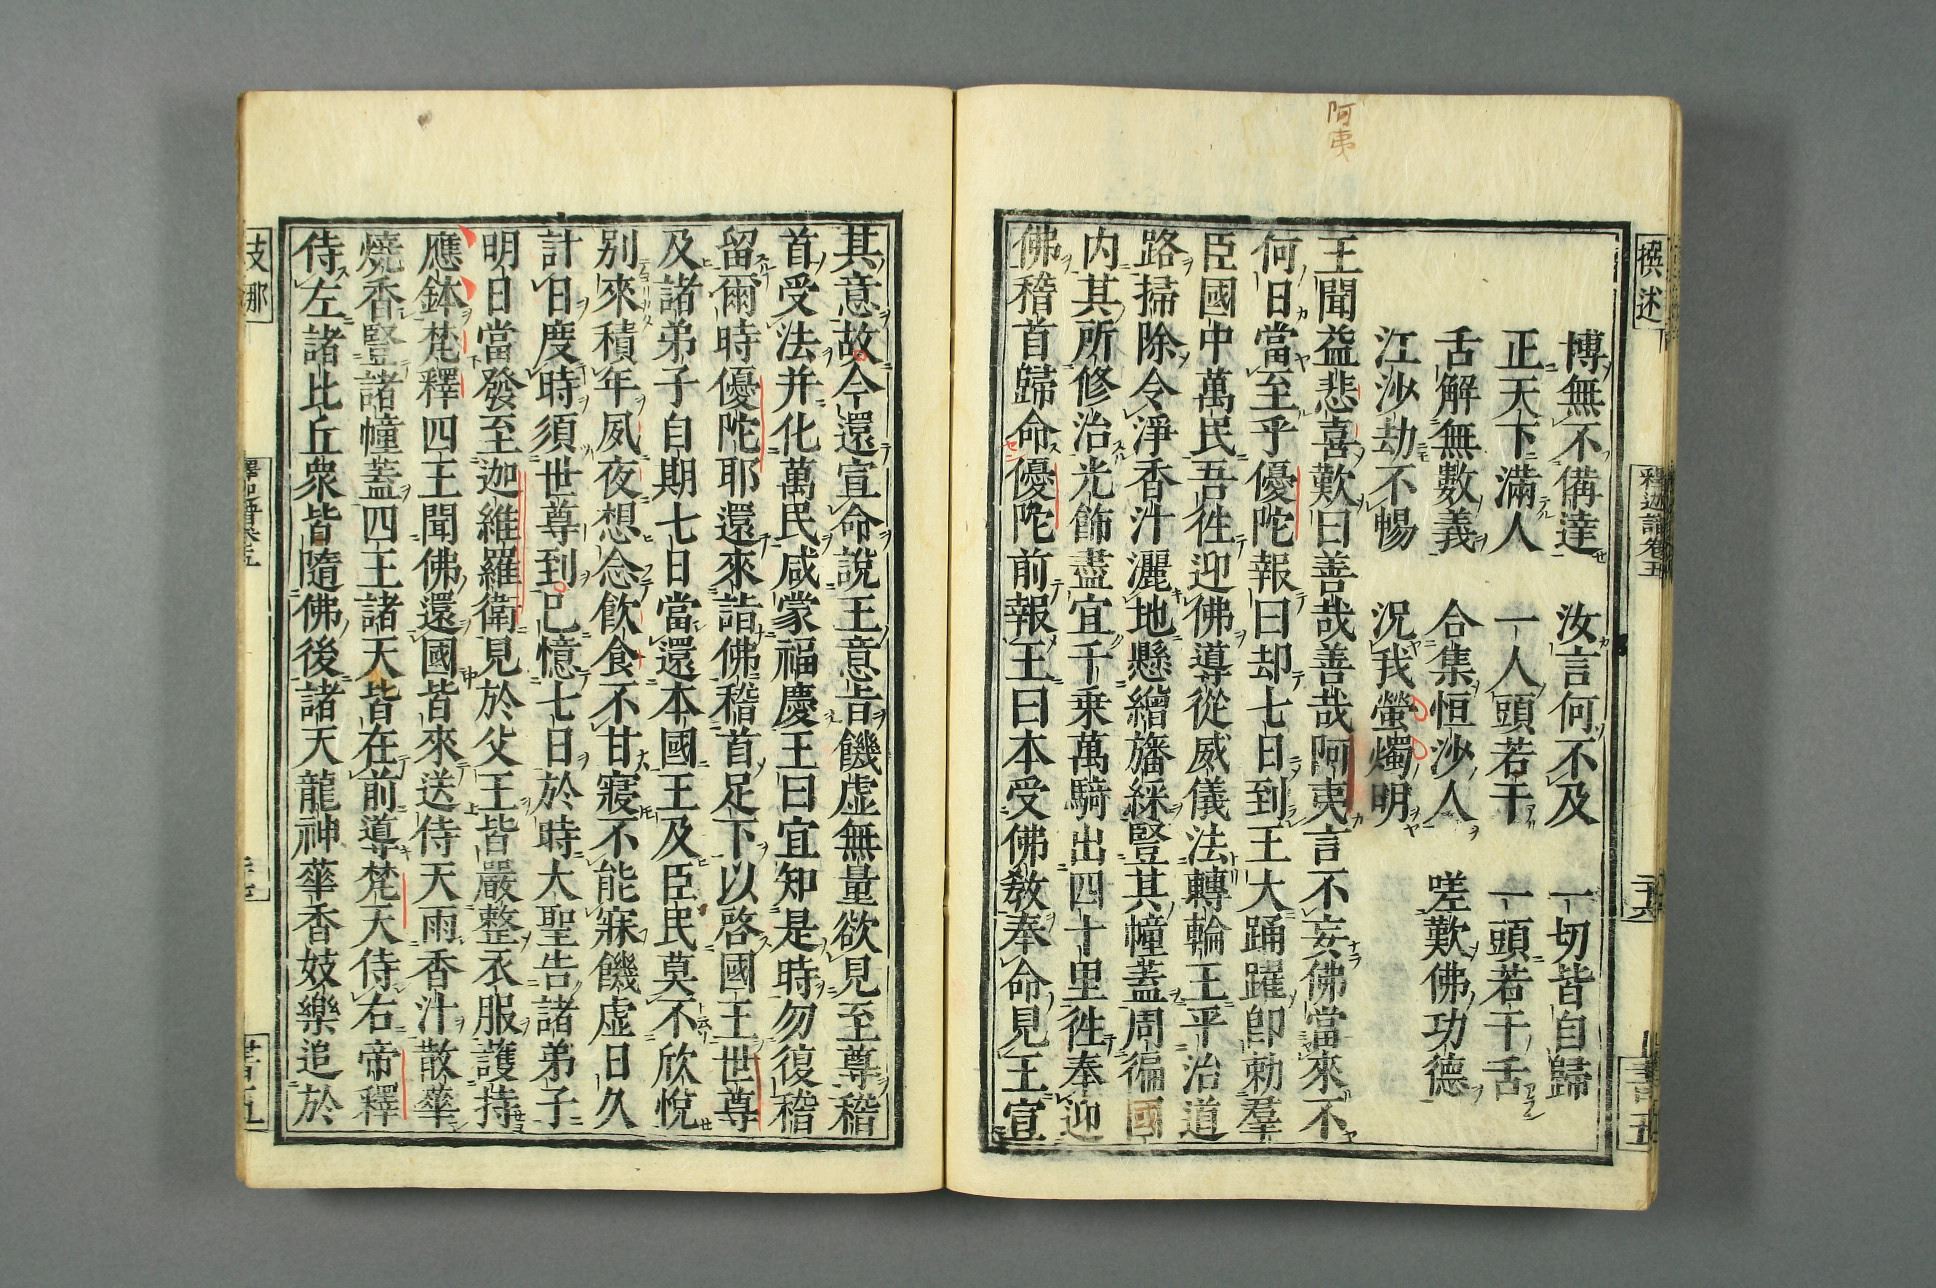 阿夷
撰述 下
釋迦譜卷五
二十六
書五
博無不備達 汝言何不及 一切皆自歸
正天下滿人 一人頭若干 一頭若干舌
舌解無數義 合集恒沙人 嗟歎佛功德
江沙劫不暢 況我螢燭明
王聞益悲喜歎曰善哉善哉阿夷言不妄佛當來不
何日當至乎優陀報曰却七日到王大踊躍卽勅羣
臣國中萬民吾徃迎佛導從威儀法轉輪王平治道
路掃除令淨香汁灑地懸繒旛綵豎其幢蓋周徧國
内其所修治光飾盡宜千乗萬騎出四十里徃奉迎
佛稽首歸命優陀前報王曰本受佛敎奉命見王宣
其意故今還宣命說王意告饑虛無量欲見至尊稽
首受法并化萬民咸蒙福慶王曰宜知是時勿復稽
留爾時優陀耶還來詣佛稽首足下以啓國王世尊
及諸弟子自期七日當還本國王及臣民莫不欣悅
别來積年夙夜想念飲食不甘寢不能寐饑虛日久
計日度時須世尊到已憶七日於時大聖告諸弟子
明日當發至迦維羅衛見於父王皆嚴整衣服護持
應鉢梵釋四王聞佛還國皆來送侍天雨香汁散華
燒香豎諸幢蓋四王諸天皆在前導梵天侍右帝釋
侍左諸比丘衆皆隨佛後諸天龍神華香妓樂追於
支那
書五